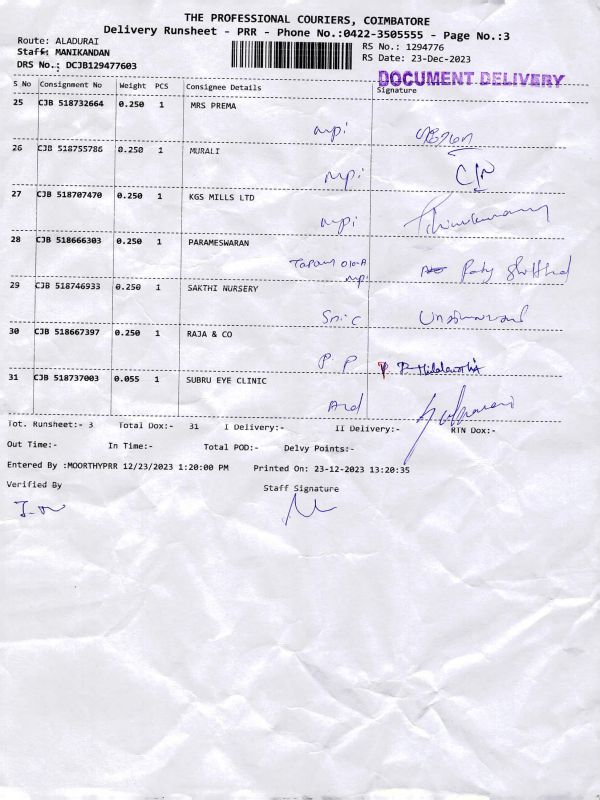 THE PROFESSIONAL COURIERS, COIMBATORE
Delivery Runsheet - PRR - Phone No.:0422-3505555 - Page No.:3
Route: ALADURAI RS No.: 1294776
Staff: MANIKANDAN RS Date: 23-Dec-2023
DRS No.: DCJB129477603
DOCUMENT DELIVERY
S No Consignment No Weight PCS Consignee Details Signature
25 CJB 518732664 0.250 1 MRS PREMA
mpi
26 CJB 518755786 0.250 1 MURALI
mpi
27 CJB 518707470 0.250 1 KGS MILLS LTD
mpi
28 CJB 518666303 0.250 1 PARAMESWARAN
mpi
29 CJB 518746933 0.250 1 SAKTHI NURSERY
30 CJB 518667397 0.250 1 RAJA & CO
P. P
31 CJB 518737003 0.055 1 SUBRU EYE CLINIC
Tot. Runsheet:- 3 Total Dox:- 31 I Delivery:- II Delivery:- RTN Dox:-
Out Time:- In Time:- Total POD:- Delvy Points:-
Entered By :MOORTHYPRR 12/23/2023 1:20:00 PM Printed On: 23-12-2023 13:20:35
Verified By Staff Signature